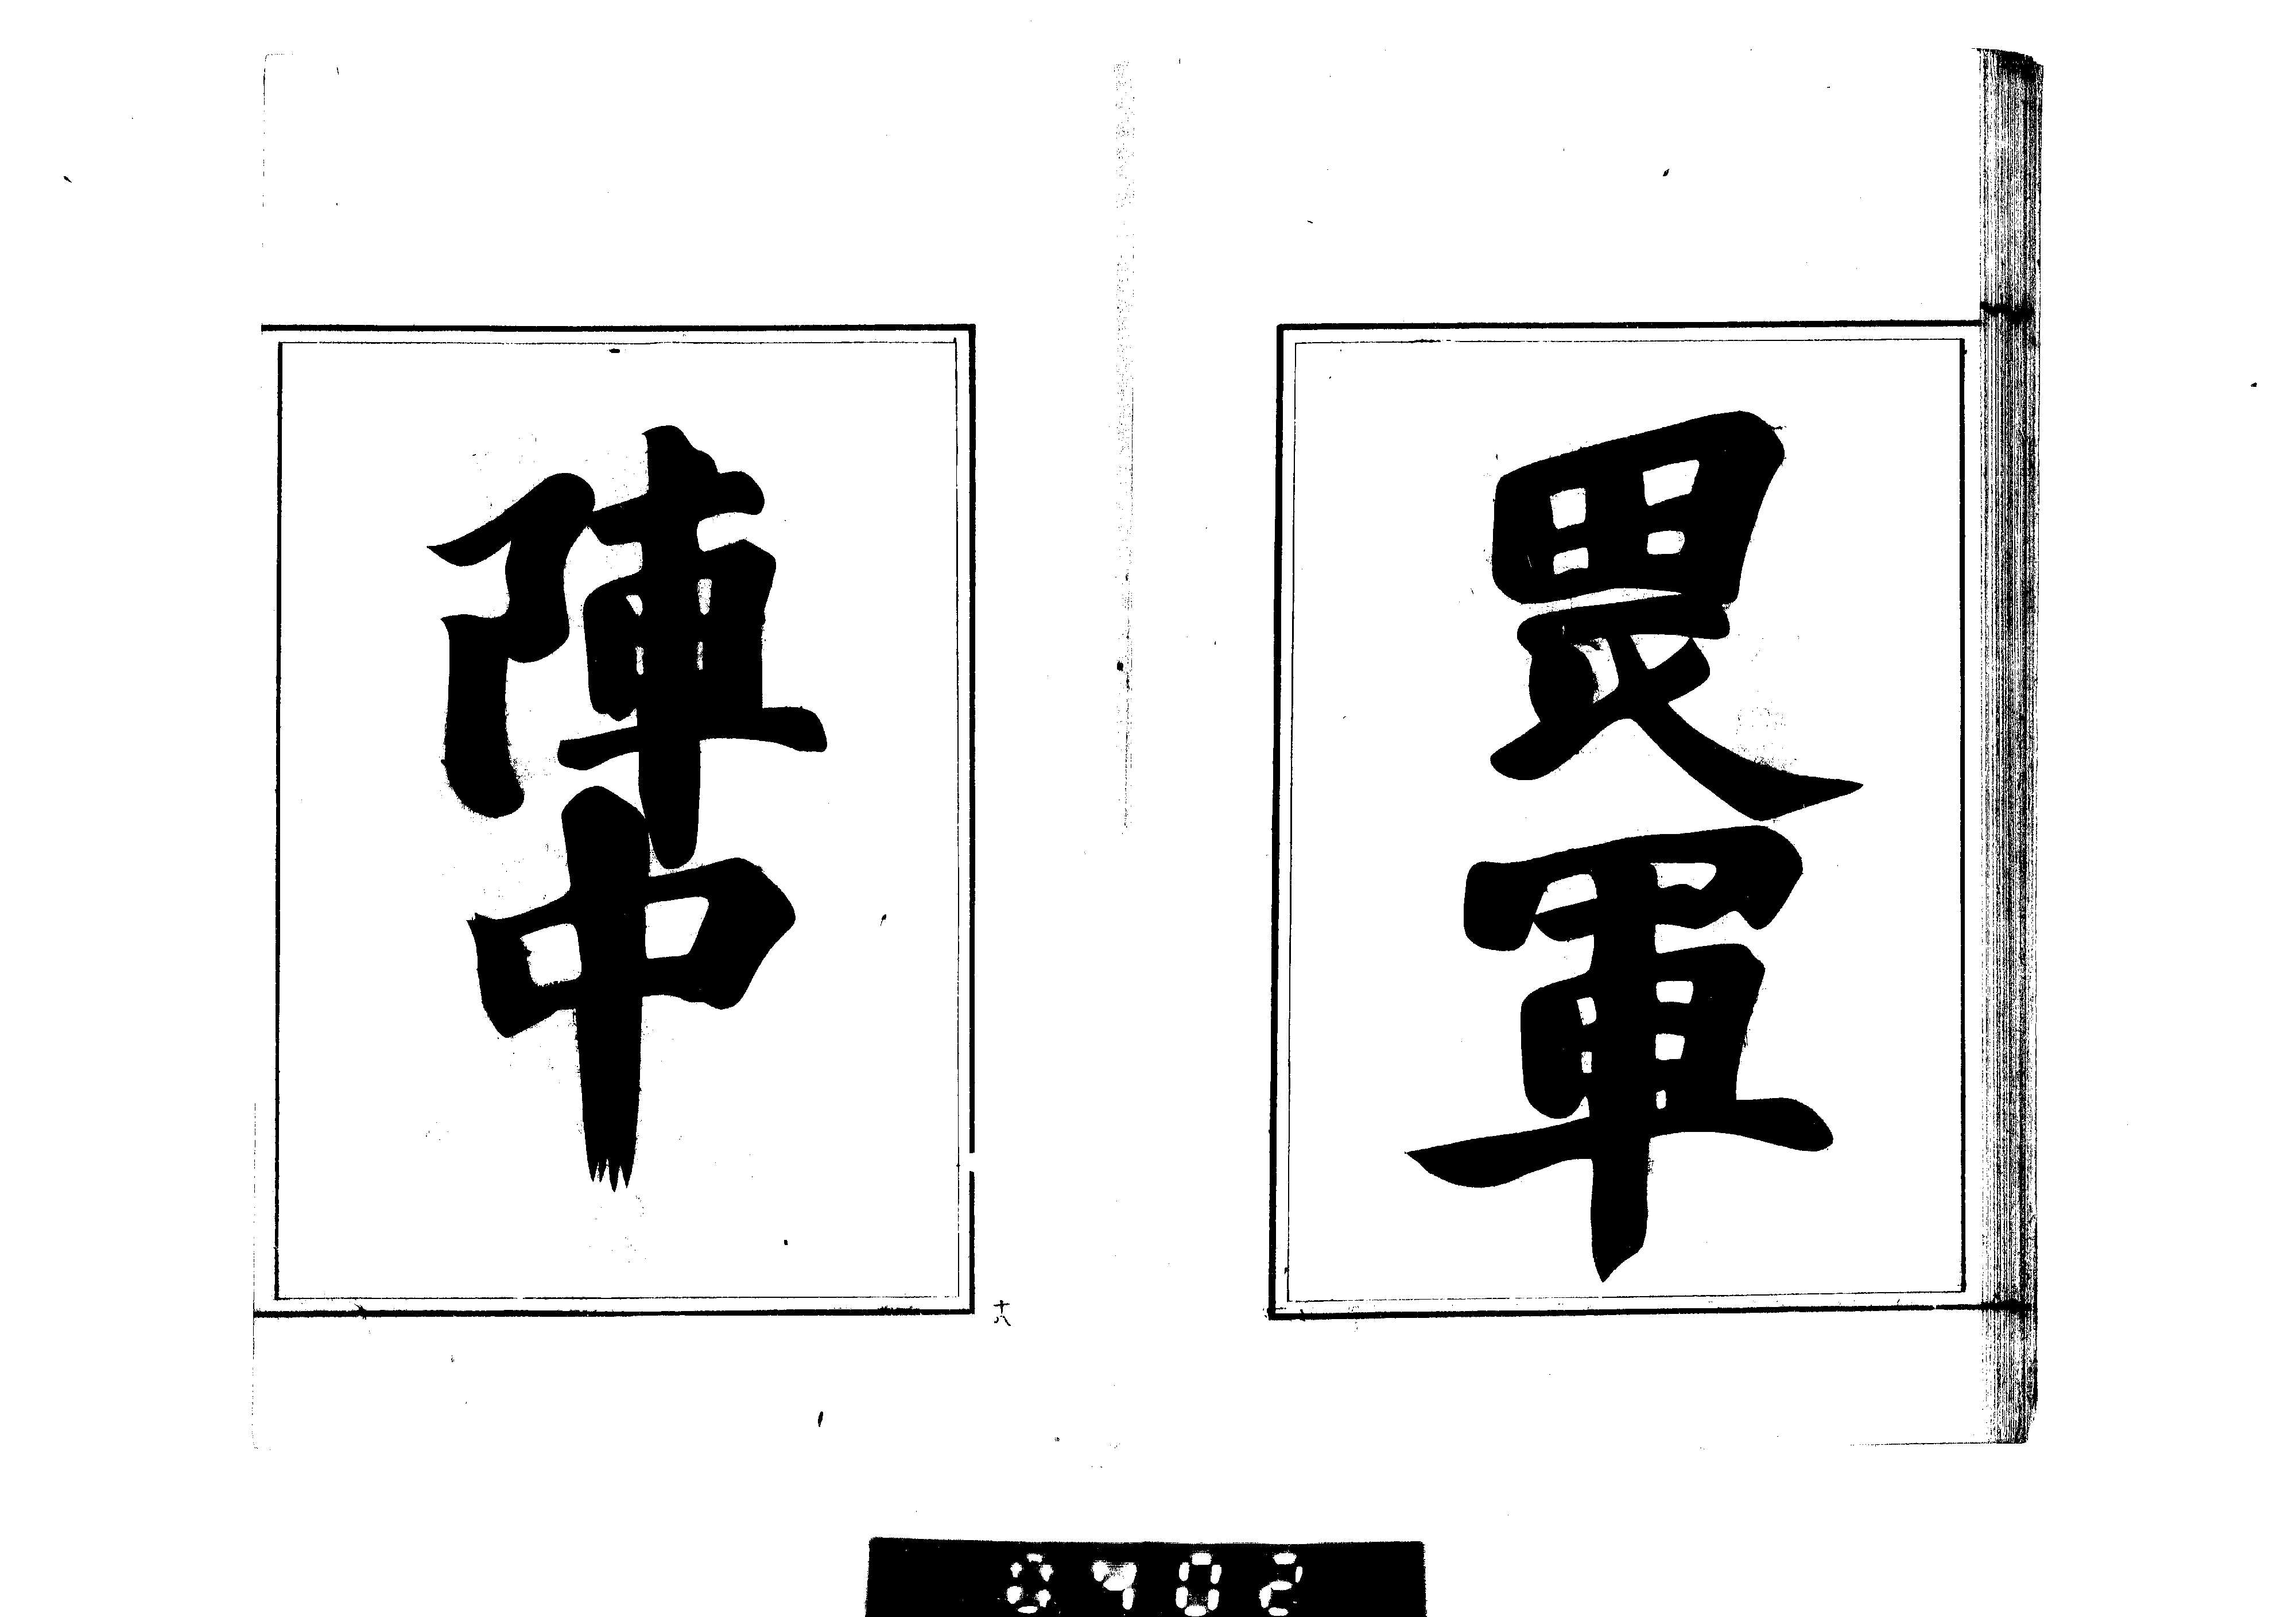 畏軍
陣中
十八
0702